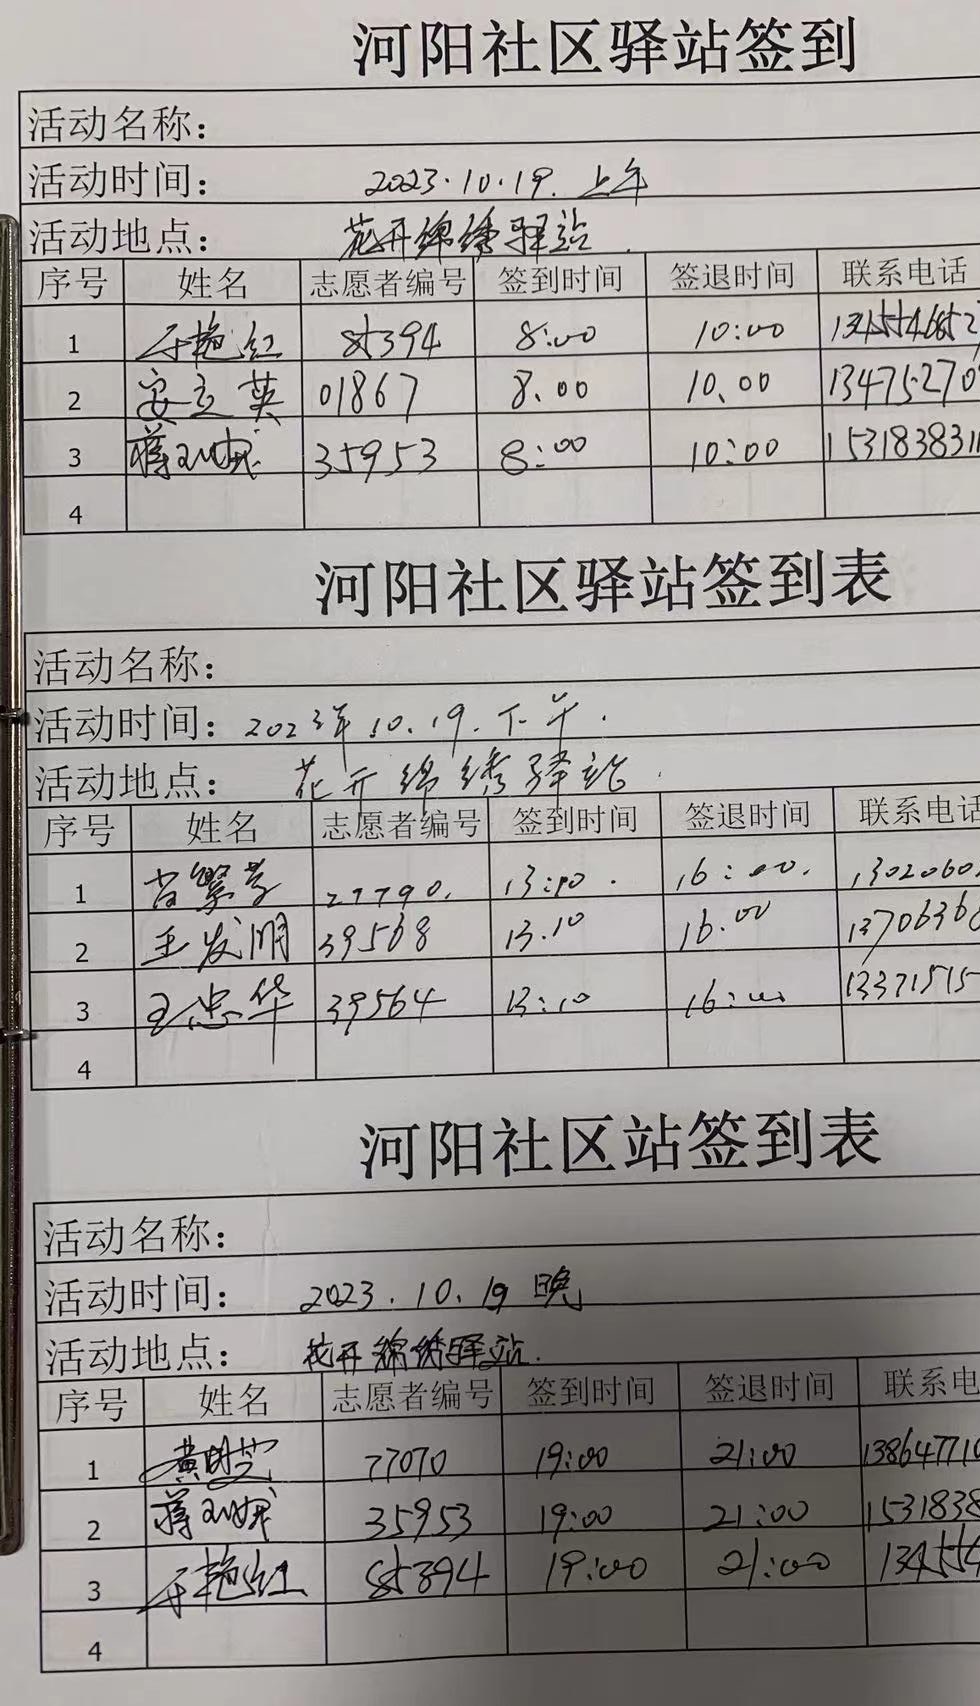 河阳社区驿站签到
活动名称：
活动时间： 2023.10.19. 上午
活动地点： 花开绵绣驿站.
序号 姓名 志愿者编号 签到时间 签退时间 联系电话
1 于艳红 85394 8:00 10:00
2 安立英 01867 8.00 10.00 13475270
3 蒋 35953 8:00 10:00 153183831
4
河阳社区驿站签到表
活动名称：
活动时间：2023年.10.19.下午.
活动地点： 花开绵绣驿站.
序号 姓名 志愿者编号 签到时间 签退时间 联系电话
1 27790. 13:10. 16:00. 1302060
2 王发明 39568 13.10 16.00 1370636
3 王忠华 39564 13:10 16:00 13371515
4
河阳社区站签到表
活动名称：
活动时间： 2023.10.19 晚
活动地点： 花开绵绣驿站.
序号 姓名 志愿者编号 签到时间 签退时间 联系电
1 黄明芝 77070 19:00 21:00 138647710
2 蒋 35953 19:00 21:00 1531838
3 于艳红 85394 19:00 21:00
4